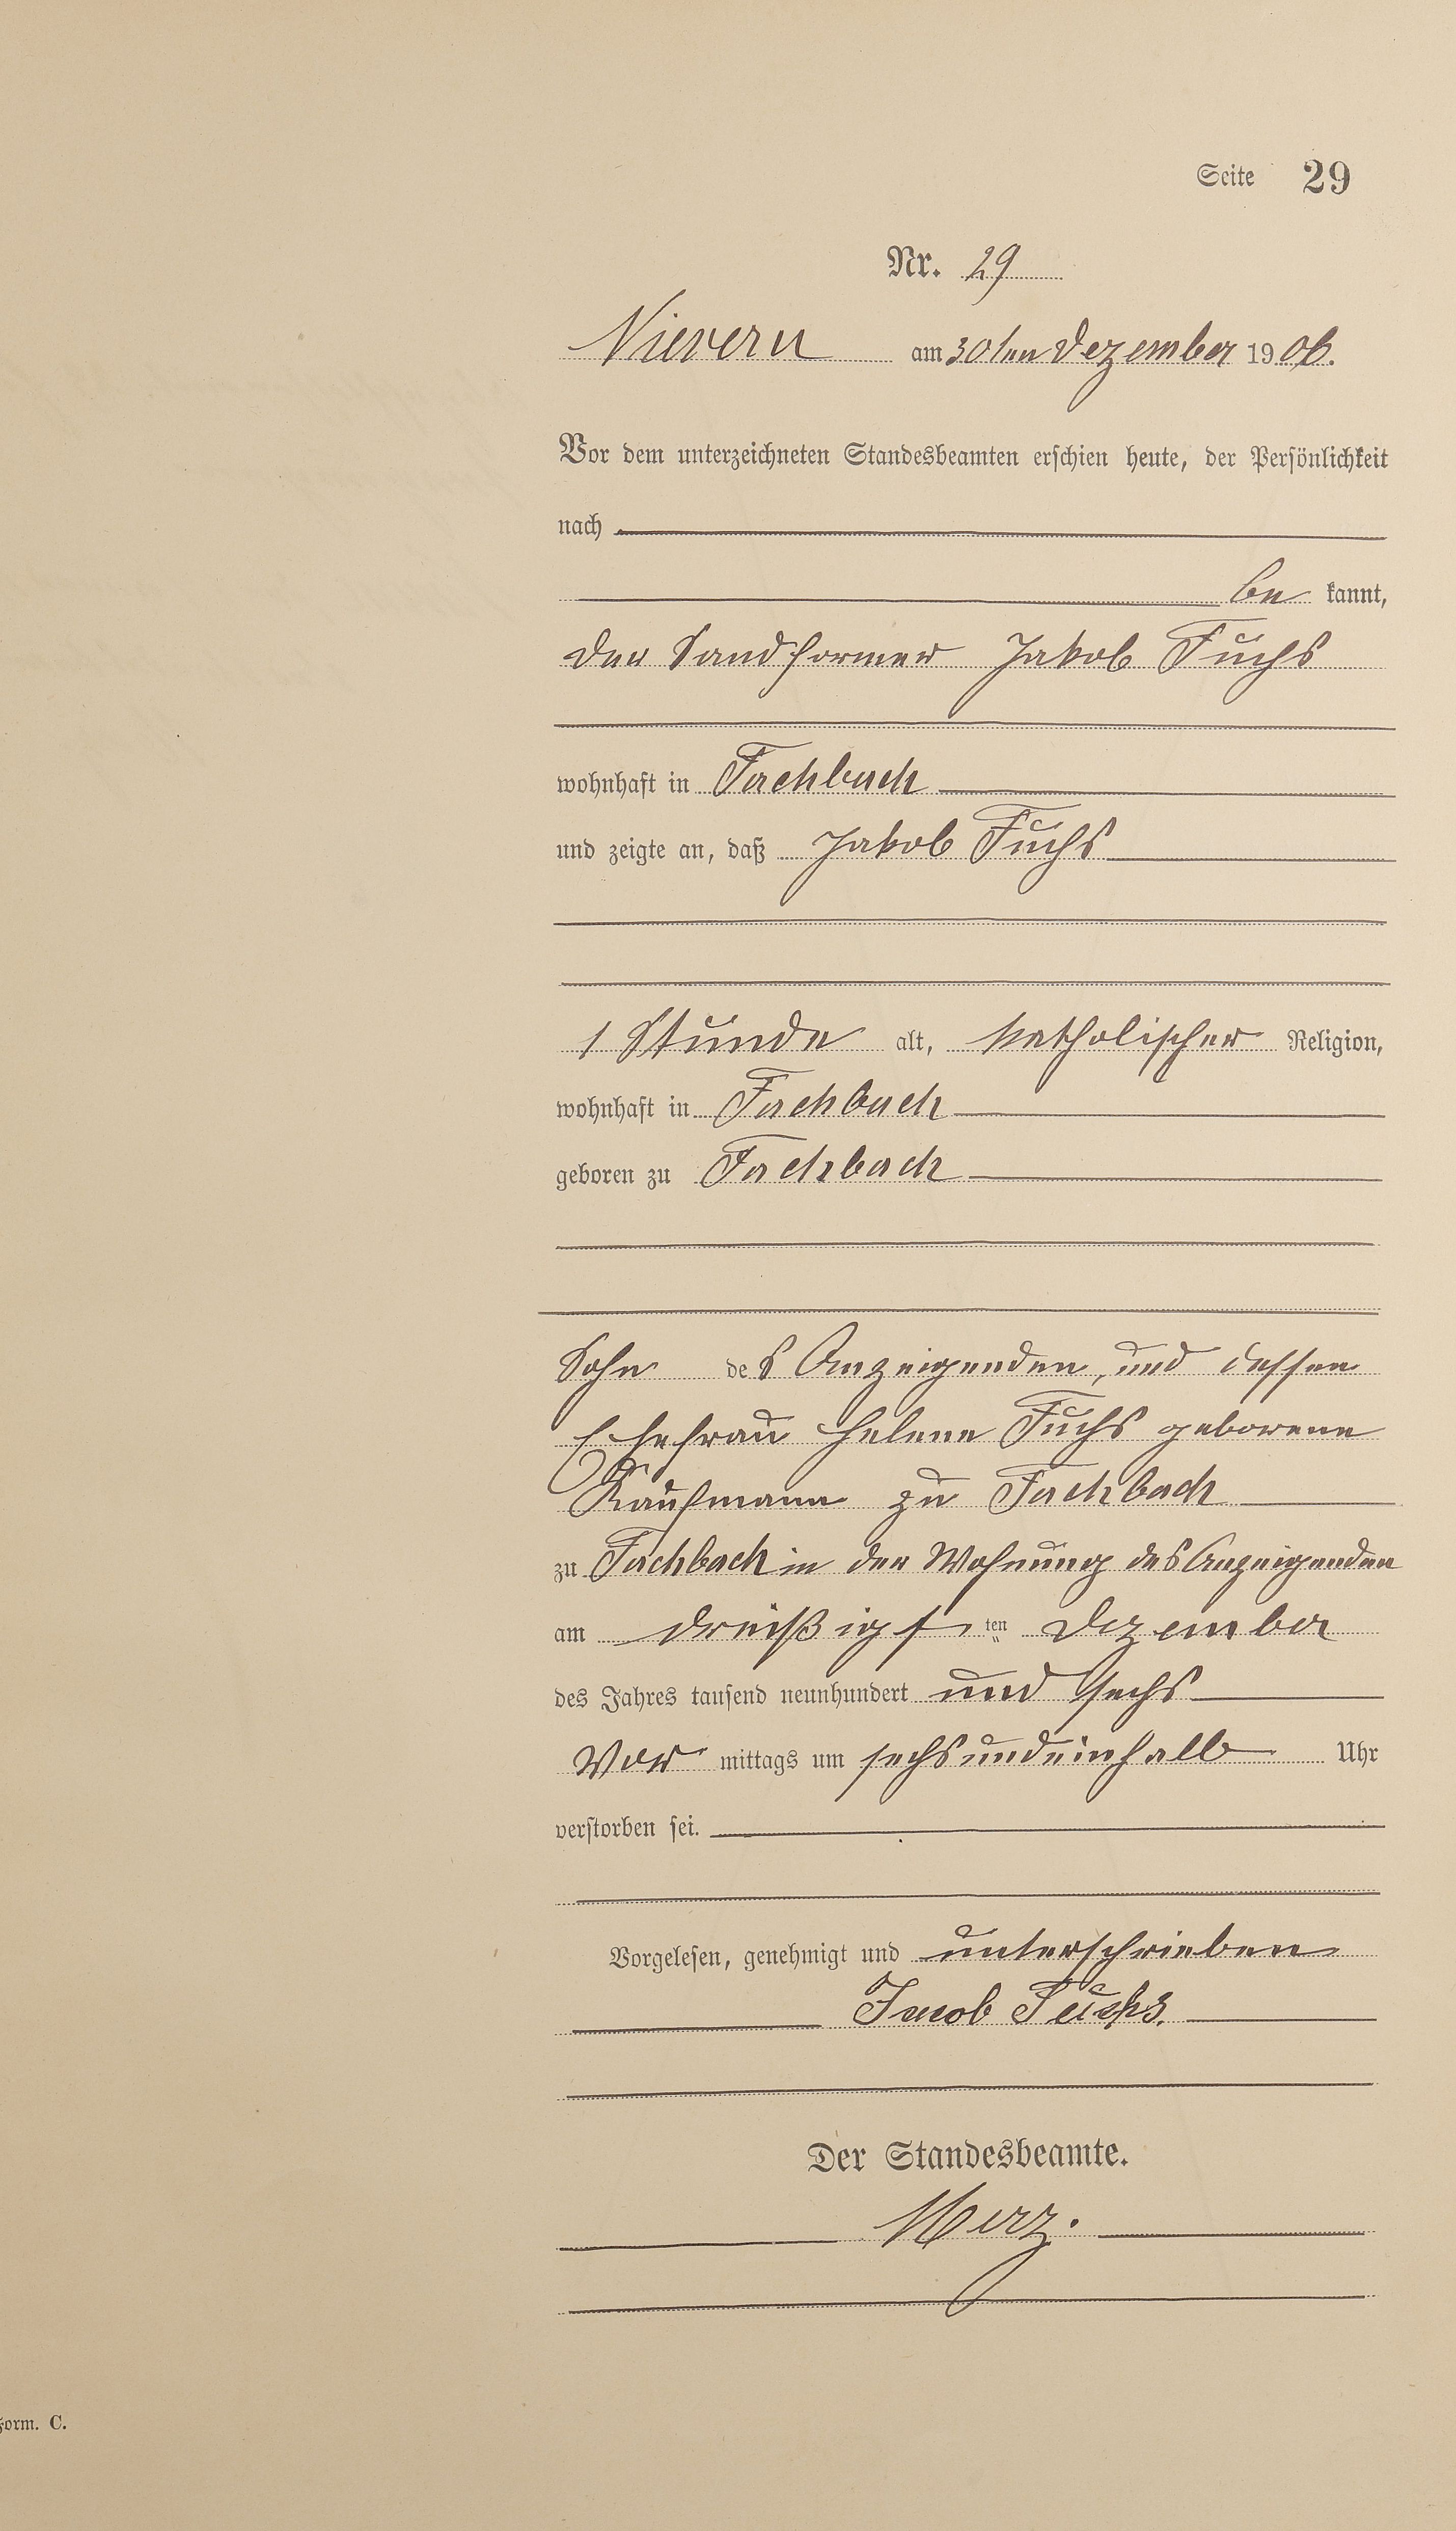 Seite 29
Nr. 29
Nievern am 30ten Dezember 1906.
Vor dem unterzeichneten Standesbeamten erschien heute, der Persönlichkeit
nach
be kannt,
der Sandformer Jakob Fuchs
wohnhaft in Fachbach
und zeigte an, daß Jakob Fuchs
1 Stunde alt, katholischer Religion,
wohnhaft in Fachbach
geboren zu Fachbach
Sohn des Anzeigenden, und dessen
Ehefrau Helene Fuchs geborene
Kaufmann zu Fachbach
zu Fachbach in der Wohnung des Anzeigenden
am dreißigsten Dezember
des Jahres tausend neunhundert und sechs
Vor mittags um sechsundeinhalb Uhr
verstorben sei.
Vorgelesen, genehmigt und unterschrieben
Jacob Fuchs.
Der Standesbeamte.
Merz.
Form. C.